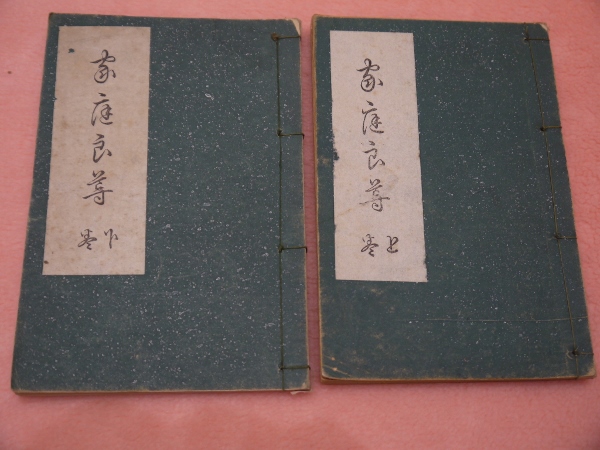 家庭良導
上巻
家庭良導
下巻